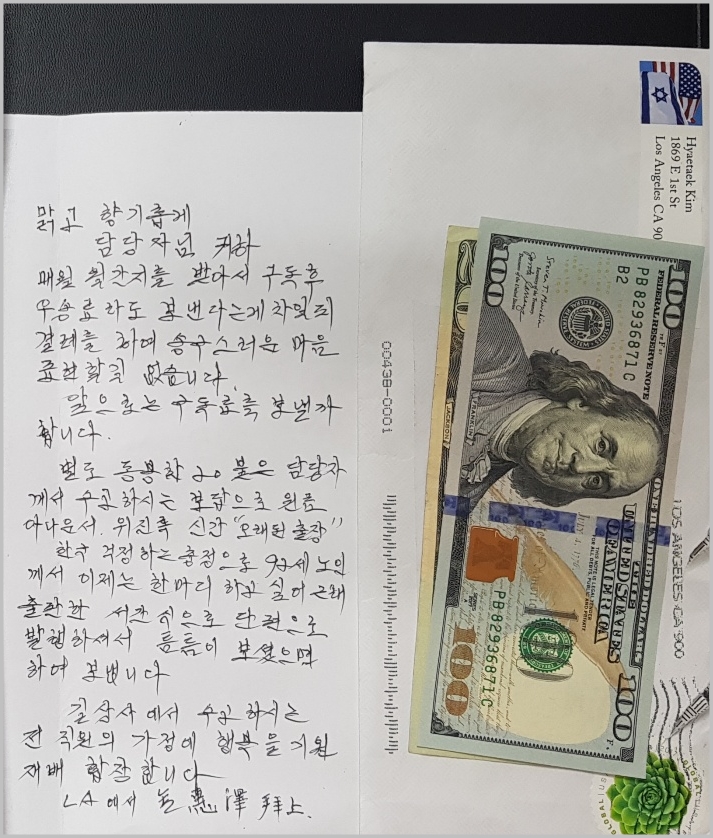 맑고 향기롭게
담당자님 귀하
매월 월간지를 받아서 구독후
우송료라도 보낸다는게 차일피
결례를 하여 송구스러운 마음
표현할길 없습니다.
앞으로는 구독료를 보낼까
합니다.
별도 동봉한 20불은 담당자
께서 수고하시는 보답으로 원로
아나운서. 위진록 신간 "오래된 출장"
한국 걱정하는 충정으로 93세 노인
께서 이제는 한마디 하고 싶어 근래
출판한 서간식으로 단편으로
발행하셔서 틈틈이 보셨으면
하여 보냅니다
길상사에서 수고하시는
전 직원의 가정에 행복을 기원
재배 합장합니다
LA에서 金惠澤 拜上.
Hyaetaek Kim
1869 E 1st St
Los Angeles CA 90
00438-0001
LOS ANGELES CA 900
GLOBAL
50
JACKSON
100
FEDERAL RESERVE NOTE
PB 82936871 C
B2
FRANKLIN
THE
UNITED STATES
OF AMERICA
THIS NOTE IS LEGAL TENDER
FOR ALL DEBTS, PUBLIC AND PRIVATE
PB 82936871 C
100
100